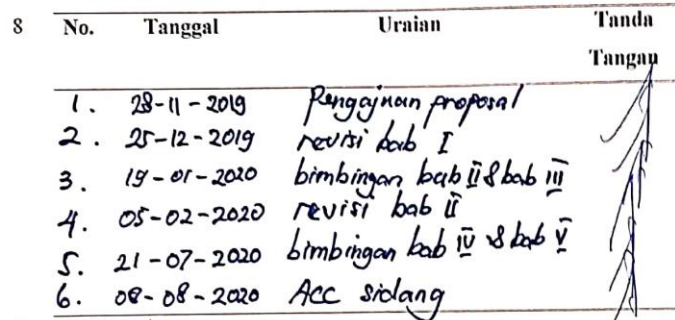 8 No. Tanggal Uraian Tanda
Tangan
1. 28-11-2019 Pengajuan proposal
2. 25-12-2019 revisi bab I
3. 19-01-2020 bimbingan bab II & bab III
4. 05-02-2020 revisi bab II
5. 21-07-2020 bimbingan bab IV & bab V
6. 08-08-2020 Acc sidang